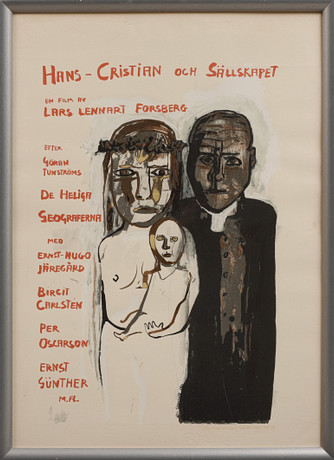 HANS-CRISTIAN OCH SÄLLSKAPET
EN FILM AV
LARS LENNART FORSBERG
EFTER
GÖRAN
TUNSTRÖMS
DE HELIGA
GEOGRAFERNA
MED
ERNST-HUGO
JÄREGÅRD
BIRGIT
CARLSTEN
PER
OSCARSON
ERNST
GÜNTHER
M.FL.